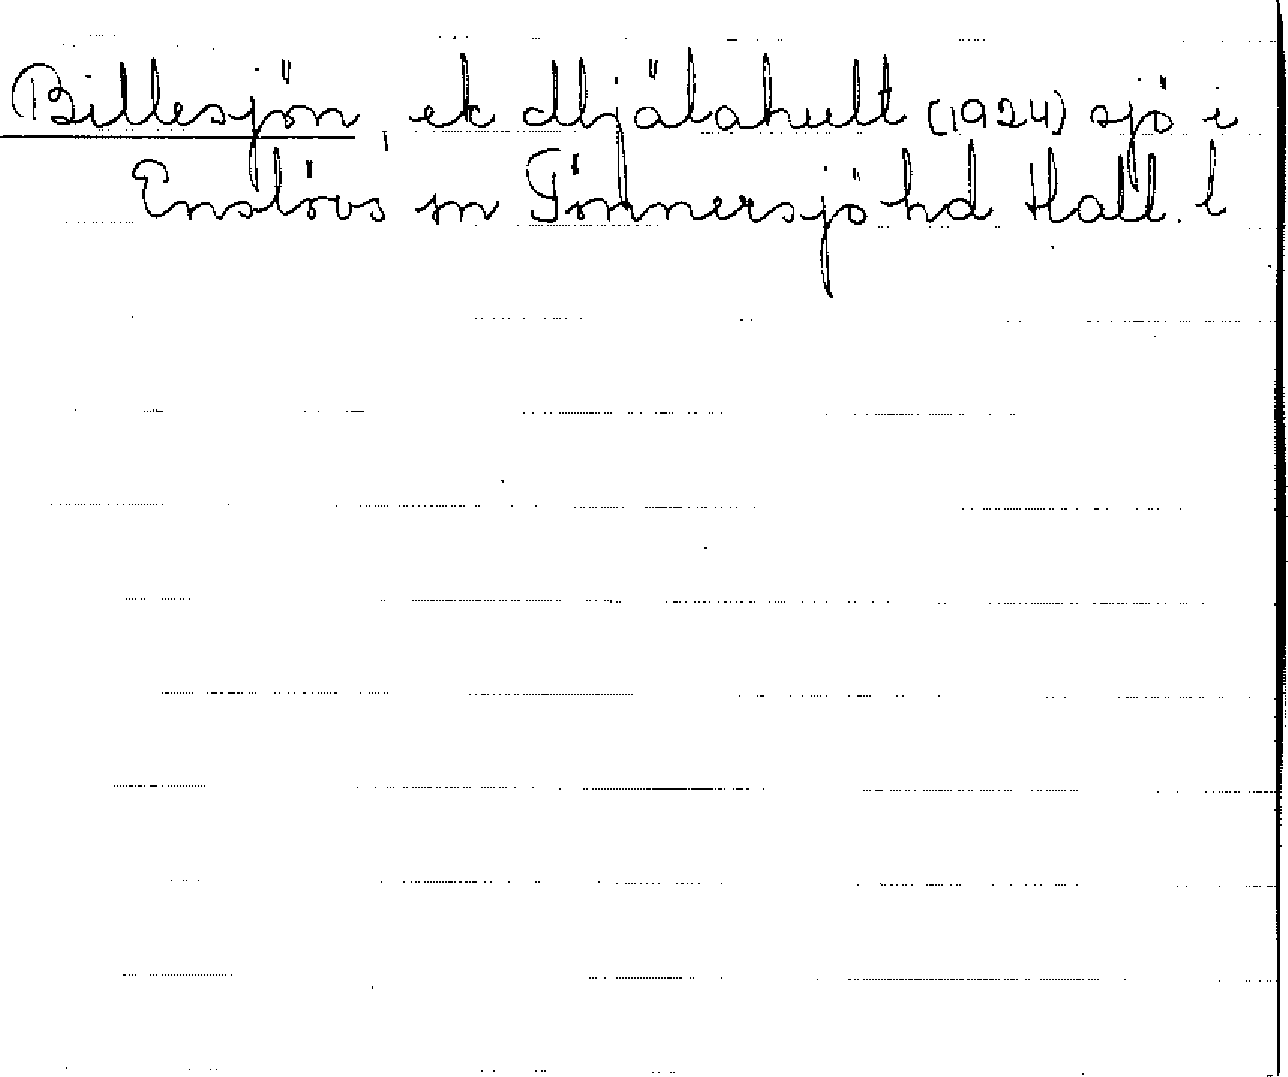 Billesjön, ek Mjälahult (1924) sjö i
Enslövs sn Tönnersjö hd Hall. l